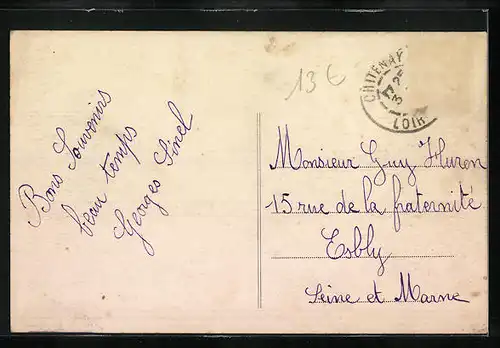 Bons Souvenirs
beau temps
Georges Sinel
13 €
CHITENAY
LOIR
Monsieur Guy Huron
15 rue de la fraternité
Esbly
Seine et Marne